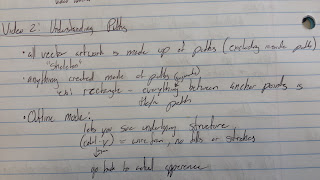 Video 2: Understanding Paths
• all vector artwork is made up of paths (excluding inside path)
"skeleton"
• anything created made of paths
ex: rectangle - everything between anchor points is
paths
• Outline mode:
lets you see underlying structure
(cmd y) = wireframe, no fills or strokes
go back to actual appearance